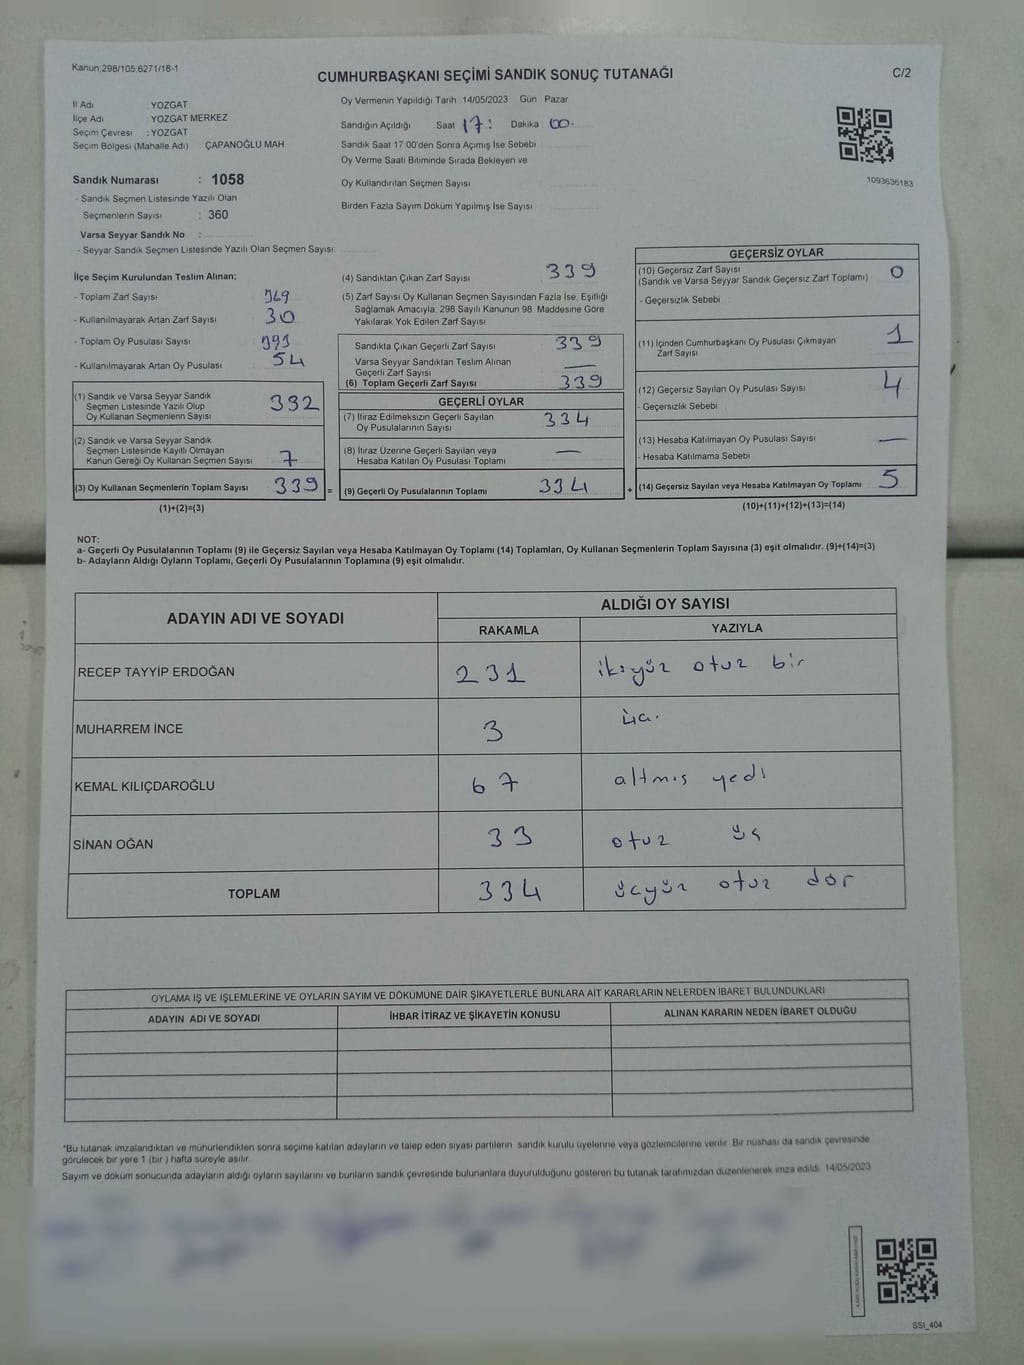 Kanun 298/105,6271/18-1
CUMHURBAŞKANI SEÇİMİ SANDIK SONUÇ TUTANAĞI
C/2
İl Adı : YOZGAT
İlçe Adı : YOZGAT MERKEZ
Seçim Çevresi : YOZGAT
Seçim Bölgesi (Mahalle Adı) ÇAPANOĞLU MAH
Sandık Numarası : 1058
- Sandık Seçmen Listesinde Yazılı Olan
Seçmenlerin Sayısı : 360
Varsa Seyyar Sandık No :
- Seyyar Sandık Seçmen Listesinde Yazılı Olan Seçmen Sayısı
Oy Vermenin Yapıldığı Tarih 14/05/2023 Gün Pazar
Sandığın Açıldığı Saat 17: Dakika 00.
Sandık Saat 17 00'den Sonra Açımış İse Sebebi
Oy Verme Saati Bitiminde Sırada Bekleyen ve
Oy Kullandırılan Seçmen Sayısı
Birden Fazla Sayım Döküm Yapılmış İse Sayısı
1093636183
İlçe Seçim Kurulundan Teslim Alınan;
- Toplam Zarf Sayısı 369
- Kullanılmayarak Artan Zarf Sayısı 30
- Toplam Oy Pusulası Sayısı 393
- Kullanılmayarak Artan Oy Pusulası 54
(1) Sandık ve Varsa Seyyar Sandık
Seçmen Listesinde Yazılı Olup
Oy Kullanan Seçmenlerin Sayısı 332
(2) Sandık ve Varsa Seyyar Sandık
Seçmen Listesinde Kayıtlı Olmayan
Kanun Gereği Oy Kullanan Seçmen Sayısı 7
(3) Oy Kullanan Seçmenlerin Toplam Sayısı 339 =
(1)+(2)=(3)
(4) Sandıktan Çıkan Zarf Sayısı 339
(5) Zarf Sayısı Oy Kullanan Seçmen Sayısından Fazla İse, Eşitliği
Sağlamak Amacıyla, 298 Sayılı Kanunun 98. Maddesine Göre
Yakılarak Yok Edilen Zarf Sayısı
Sandıkta Çıkan Geçerli Zarf Sayısı 339
Varsa Seyyar Sandıktan Teslim Alınan
Geçerli Zarf Sayısı —
(6) Toplam Geçerli Zarf Sayısı 339
GEÇERLİ OYLAR
(7) İtiraz Edilmeksizin Geçerli Sayılan
Oy Pusulalarının Sayısı 334
(8) İtiraz Üzerine Geçerli Sayılan veya
Hesaba Katılan Oy Pusulası Toplamı —
(9) Geçerli Oy Pusulalarının Toplamı 334 +
GEÇERSİZ OYLAR
(10) Geçersiz Zarf Sayısı
(Sandık ve Varsa Seyyar Sandık Geçersiz Zarf Toplamı) 0
- Geçersizlik Sebebi
(11) İçinden Cumhurbaşkanı Oy Pusulası Çıkmayan
Zarf Sayısı 1
(12) Geçersiz Sayılan Oy Pusulası Sayısı 4
- Geçersizlik Sebebi
(13) Hesaba Katılmayan Oy Pusulası Sayısı —
- Hesaba Katılmama Sebebi
(14) Geçersiz Sayılan veya Hesaba Katılmayan Oy Toplamı 5
(10)+(11)+(12)+(13)=(14)
NOT:
a- Geçerli Oy Pusulalarının Toplamı (9) ile Geçersiz Sayılan veya Hesaba Katılmayan Oy Toplamı (14) Toplamları, Oy Kullanan Seçmenlerin Toplam Sayısına (3) eşit olmalıdır. (9)+(14)=(3)
b- Adayların Aldığı Oyların Toplamı, Geçerli Oy Pusulalarının Toplamına (9) eşit olmalıdır.
ADAYIN ADI VE SOYADI
ALDIĞI OY SAYISI
RAKAMLA YAZIYLA
RECEP TAYYİP ERDOĞAN 231 ikiyüz otuz bir
MUHARREM İNCE 3 üç.
KEMAL KILIÇDAROĞLU 67 altmış yedi
SİNAN OĞAN 33 otuz üç
TOPLAM 334 üçyüz otuz dör
OYLAMA İŞ VE İŞLEMLERİNE VE OYLARIN SAYIM VE DÖKÜMÜNE DAİR ŞİKAYETLERLE BUNLARA AİT KARARLARIN NELERDEN İBARET BULUNDUKLARI
ADAYIN ADI VE SOYADI İHBAR İTİRAZ VE ŞİKAYETİN KONUSU ALINAN KARARIN NEDEN İBARET OLDUĞU
*Bu tutanak imzalandıktan ve mühürlendikten sonra seçime katılan adayların ve talep eden siyasi partilerin sandık kurulu üyelerine veya gözlemcilerine verilir. Bir nüshası da sandık çevresinde
görülecek bir yere 1 (bir ) hafta süreyle asılır.
Sayım ve döküm sonucunda adayların aldığı oyların sayılarını ve bunların sandık çevresinde bulunanlara duyurulduğunu gösteren bu tutanak tarafımızdan düzenlenerek imza edildi. 14/05/2023
SSI_404